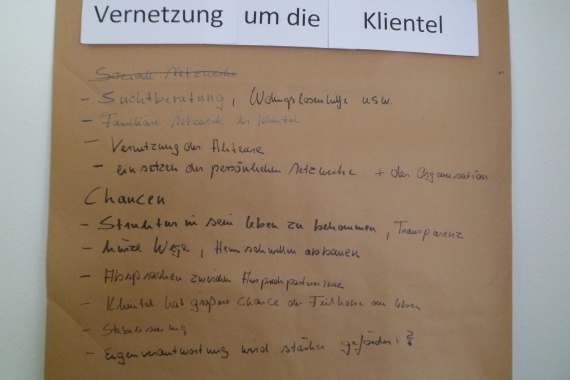 Vernetzung um die Klientel
Soziale Netzwerke
- Suchtberatung, Wohnungslosenhilfe usw.
- Familiäre Netzwerke der Klientel
- Vernetzung der Akteure
- einsetzen der persönlichen Netzwerke + der Organisation
Chancen
- Struktur in sein Leben zu bekommen, Transparenz
- kurze Wege, Hemschwellen abbauen
- Absprachen zwischen Ansprechpartner
- Klientel hat größere Chance der Teilhabe am Leben
- Stabilisierung
- Eigenverantwortung wird stärker gefördert?